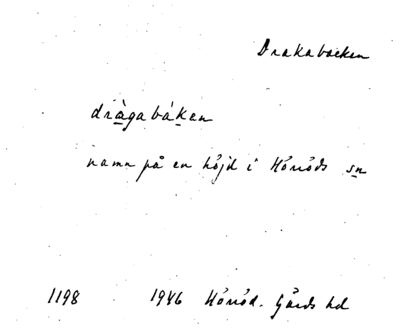 Drakabacken
dràgabákan
namn på en höjd i Hörröds sn
1198 1946 Hörröd. Gärds hd